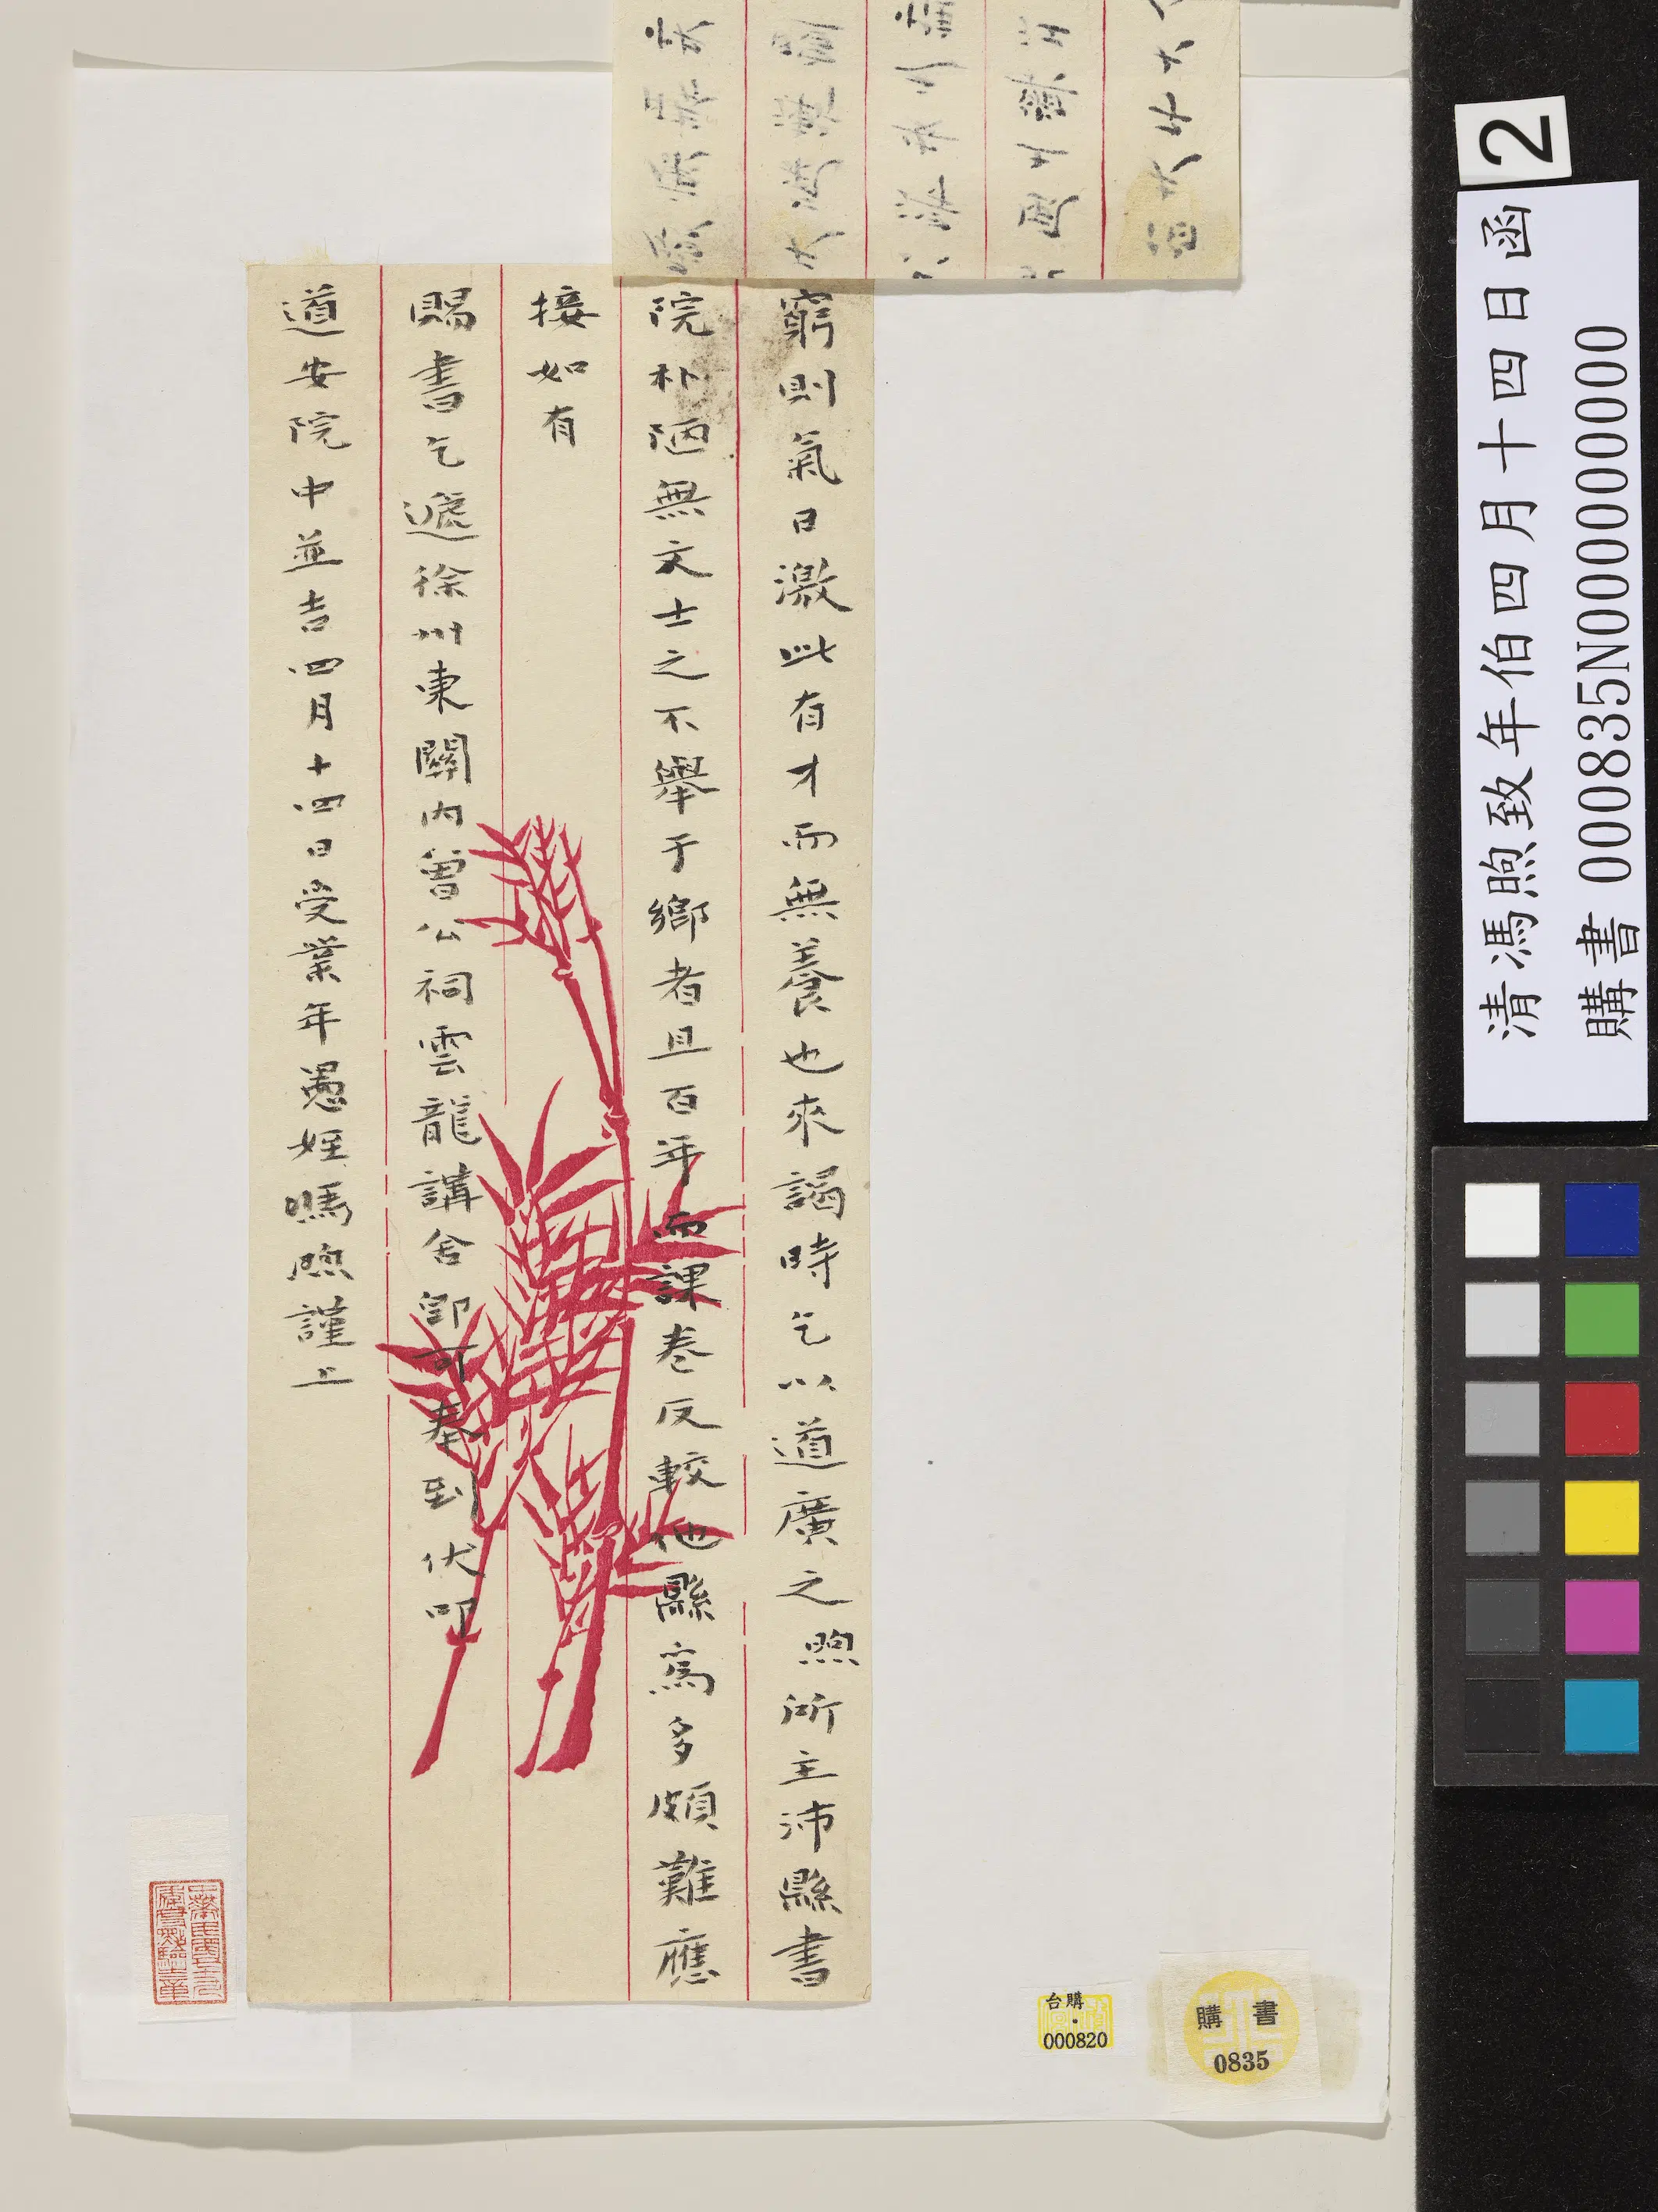 窮則氣日激此有才而無養也來謁時乞以道廣之煦所主沛縣書
院朴陋無文士之不舉于鄉者且百年而課卷反較他縣為多頗難應
接如有
賜書乞遞徐州東關內曾公祠雲龍講舍即可奉到伏叩
道安院中並吉四月十四日受業年愚姪馮煦謹上
2
清馮煦致年伯四月十四日函
購書 000835N000000000
台購
000820
購書
0835